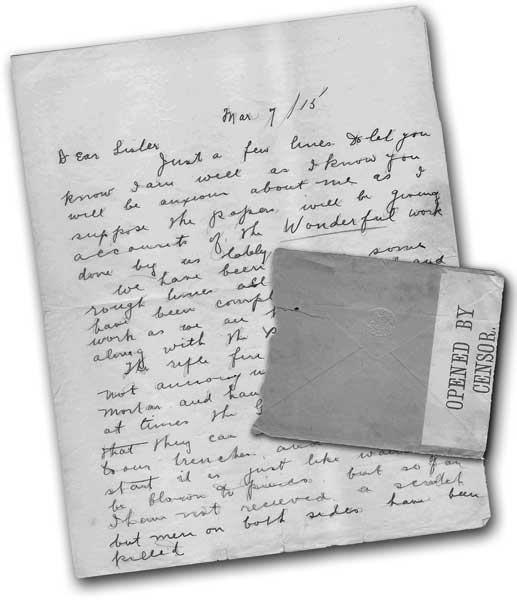 Mar 7/15
Dear Sister
Just a few lines to let you
know I am well as I know you
will be anxious about me as I
suppose the papers will be giving
accounts of the Wonderful work
done by us lately some
we have been and
rough times
have been
work as we are
along with the
The rifle fire
not annoy
mortar and
at times the
that they can
to our trenches and
start it is just like
be blown to pieces but so far
I have not recieved a scratch
but men on both sides have been
killed
OPENED BY
CENSOR.